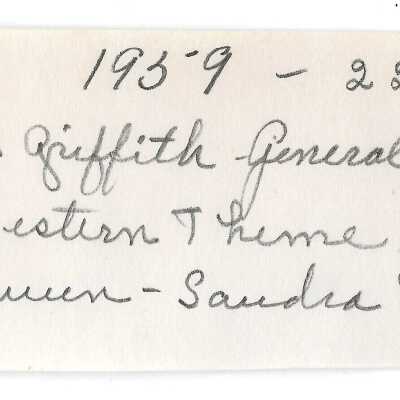 1959 - 22
Griffith General
estern Theme
ueen - Sandra